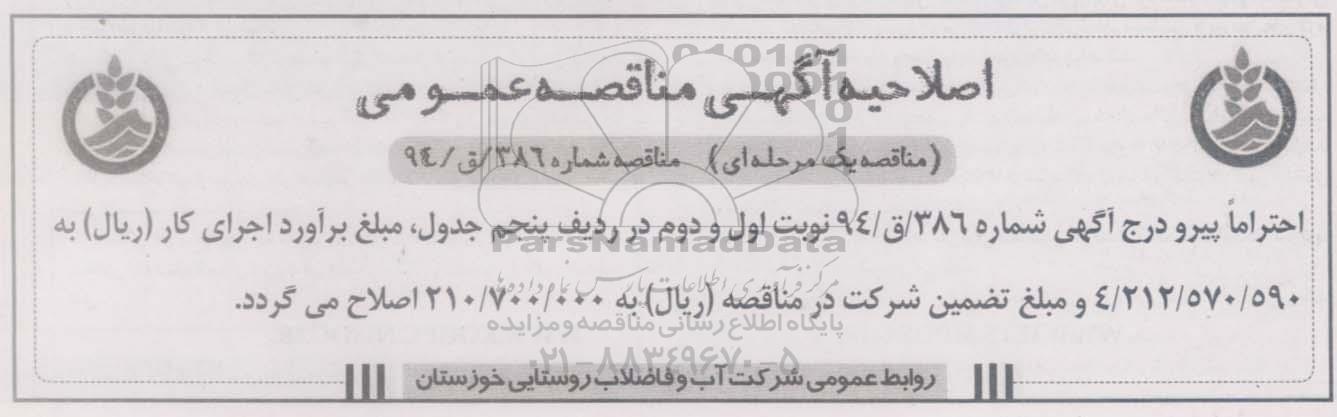 اصلاحیه آگهی مناقصه عمومی
(مناقصه یک مرحله ای) مناقصه شماره ۳۸۶/ق/۹٤
احتراماً پیرو درج آگهی شماره ۳۸۶/ق/۹٤ نوبت اول و دوم در ردیف پنجم جدول، مبلغ برآورد اجرای کار (ریال) به
٤/۲۱۲/۵۷۰/۵۹۰ و مبلغ تضمین شرکت در مناقصه (ریال) به ۲۱۰/۷۰۰/۰۰۰ اصلاح می گردد.
روابط عمومی شرکت آب و فاضلاب روستایی خوزستان
ParsNamadData
مرکز فرآوری اطلاعات پارس نماد داده ها
پایگاه اطلاع رسانی مناقصه و مزایده
۰۲۱-۸۸۳٤۹۶۷۰-۵